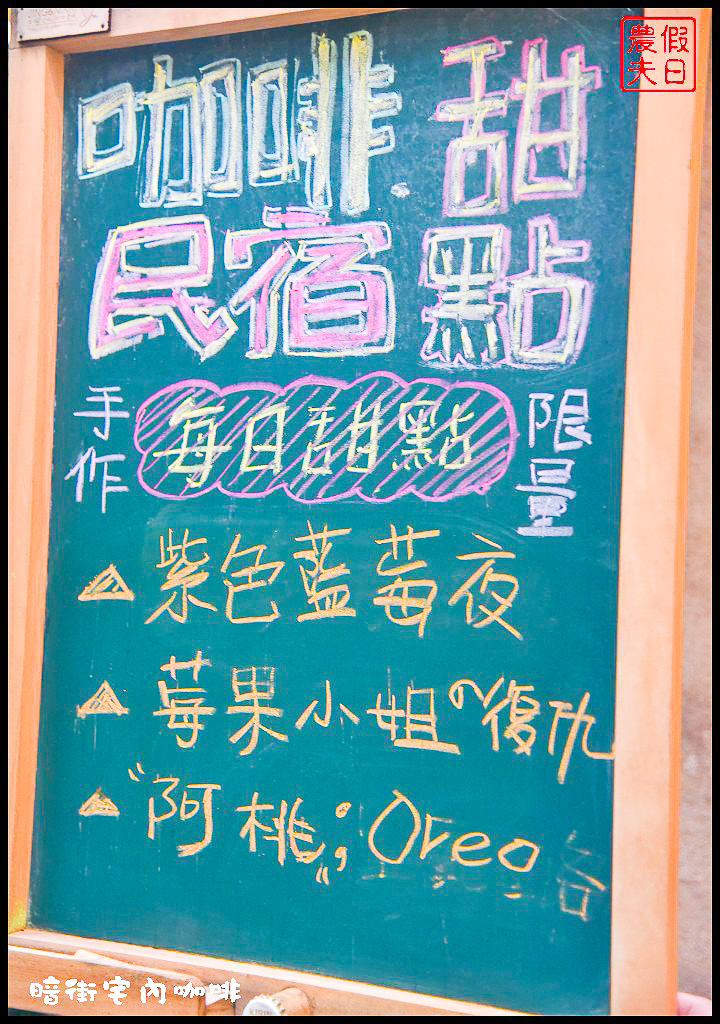 假日
農夫
咖啡.甜
民宿 點
手作 每日甜點 限量
紫色藍莓夜
莓果小姐の復仇
"阿桃"; Oreo
暗街宅內咖啡